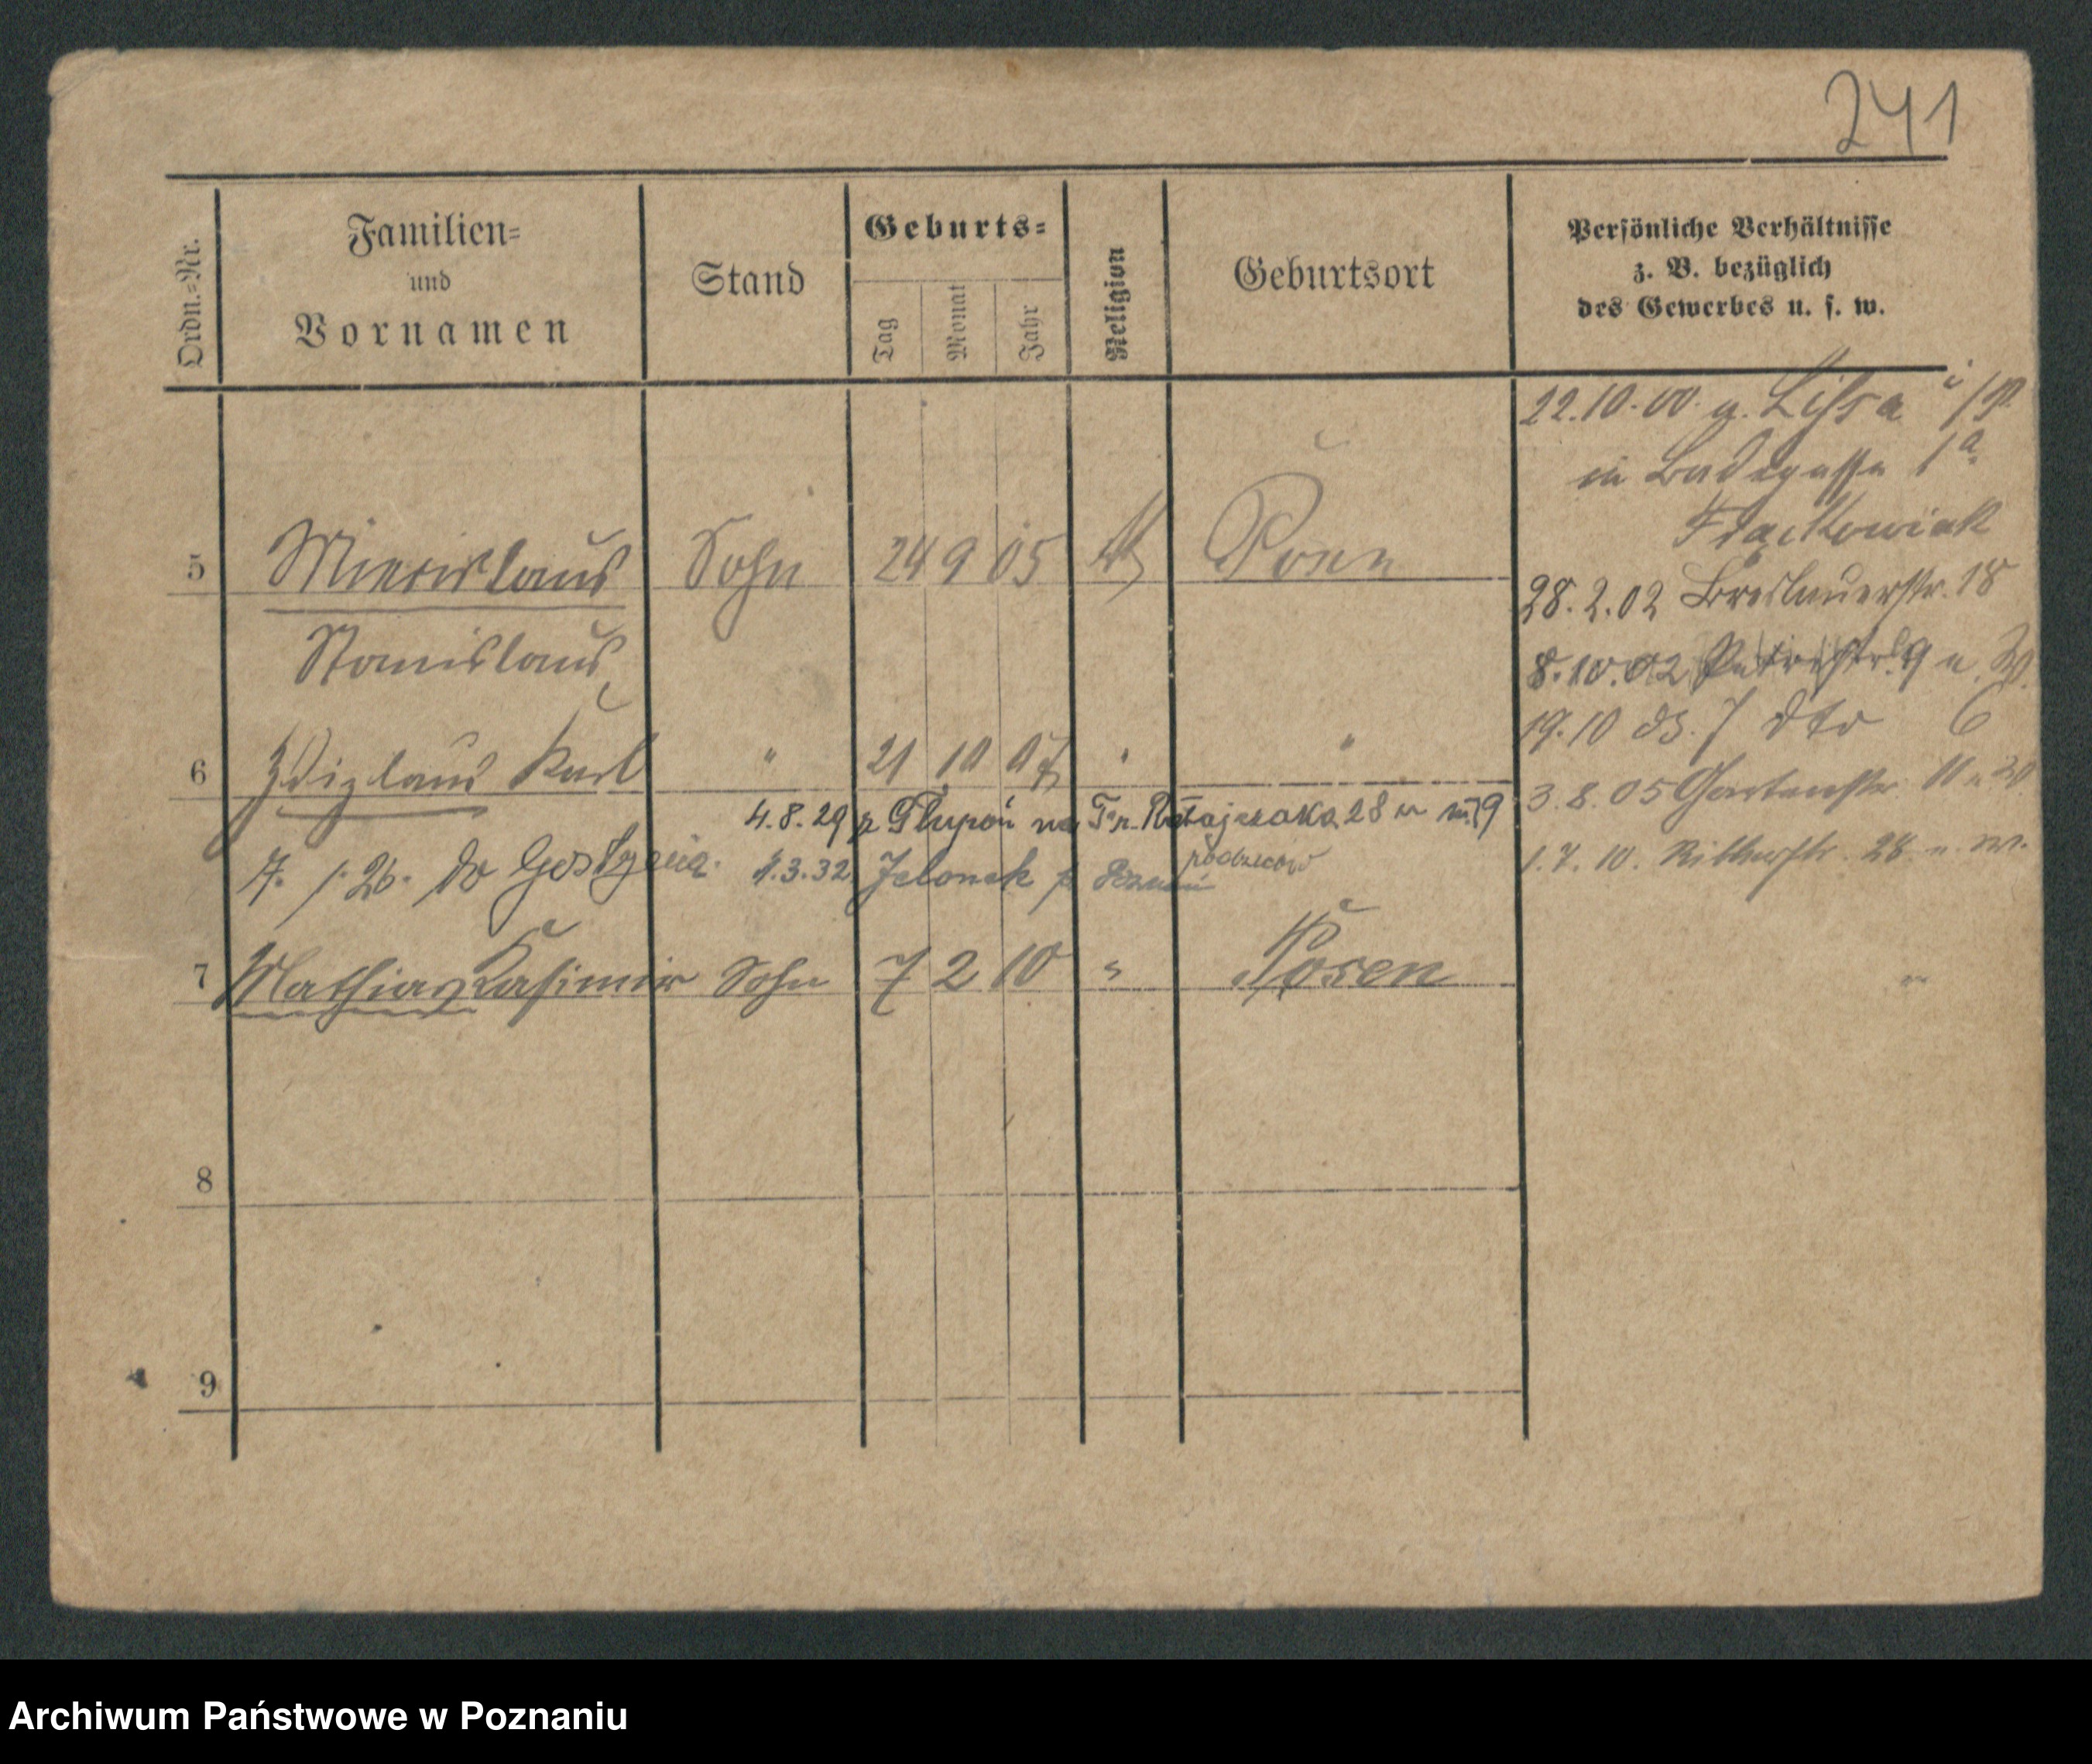 241
Ordn.-Nr.
Familien-
und
Vornamen
Stand
Geburts-
Tag
Monat
Jahr
Religion
Geburtsort
Persönliche Verhältnisse
z. B. bezüglich
des Gewerbes u. s. w.
22.10.00. a. Lissa i/P.
in Badegasse 1a
Frąckowiak
5 Miecislaus Sohn 24 9 05 Posen
28.2.02 Breslauerstr. 18
Stanislaus
8.10.02 Petristr. 9 u. W.
19.10 03. dto 6
6 Zdizlaus Karl " 21 10 07 " "
3.8.05 Gartenstr. 11 u. W.
4.8.29 z Głuponi na Fr. Ratajczaka 28 m 19
7. 1. 26. do Gostynia. 1.3.32. Jelonek p Poznań
1.7.10. Ritterstr. 28 u. W.
7 Mathias Kasimir Sohn 7 2 10 " Posen
8
9
Archiwum Państwowe w Poznaniu